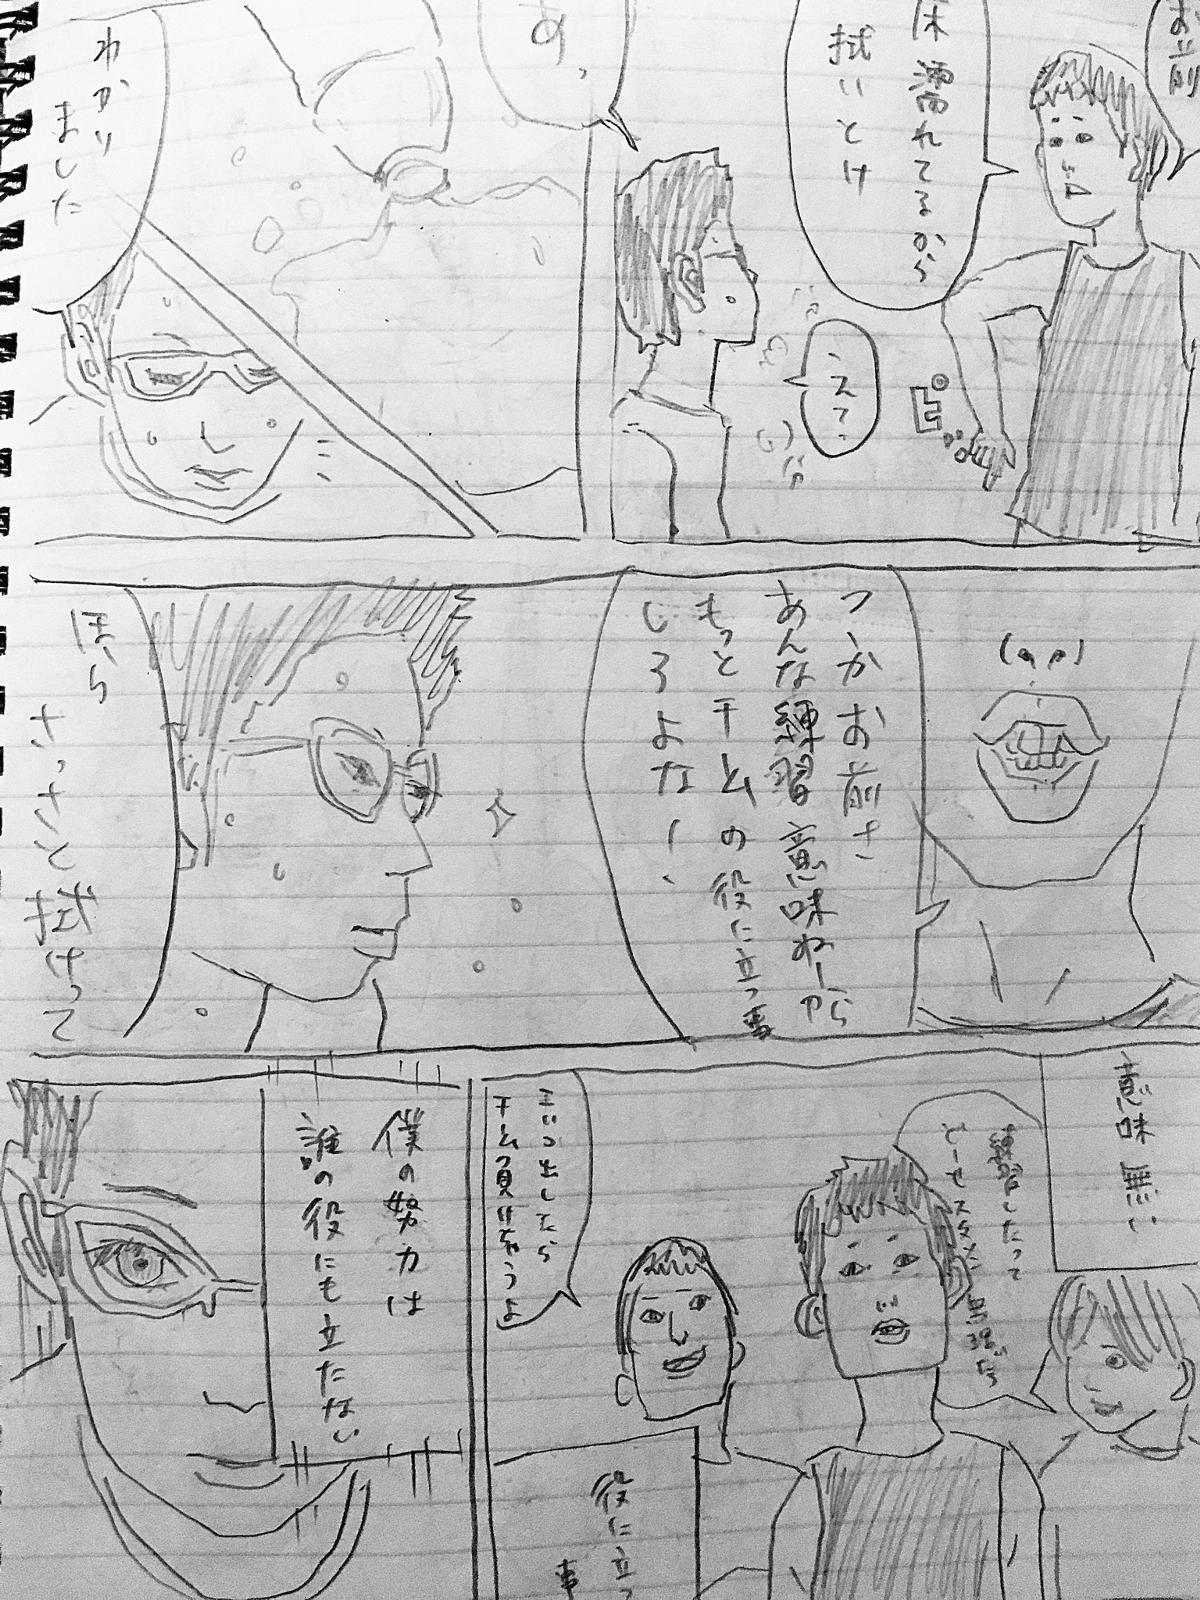 お前
床濡れてるから
拭いとけ
え?
あ、
わかり
ました
つかお前さ
あんな練習意味ねーから
もっとチームの役に立つ事
しろよな!
ほら
さっさと
意味無い
練習したって
どーせスタメン
こいつ出したら
チーム負けちゃうよ
役に立つ
事
僕の努力は
誰の役にも立たない